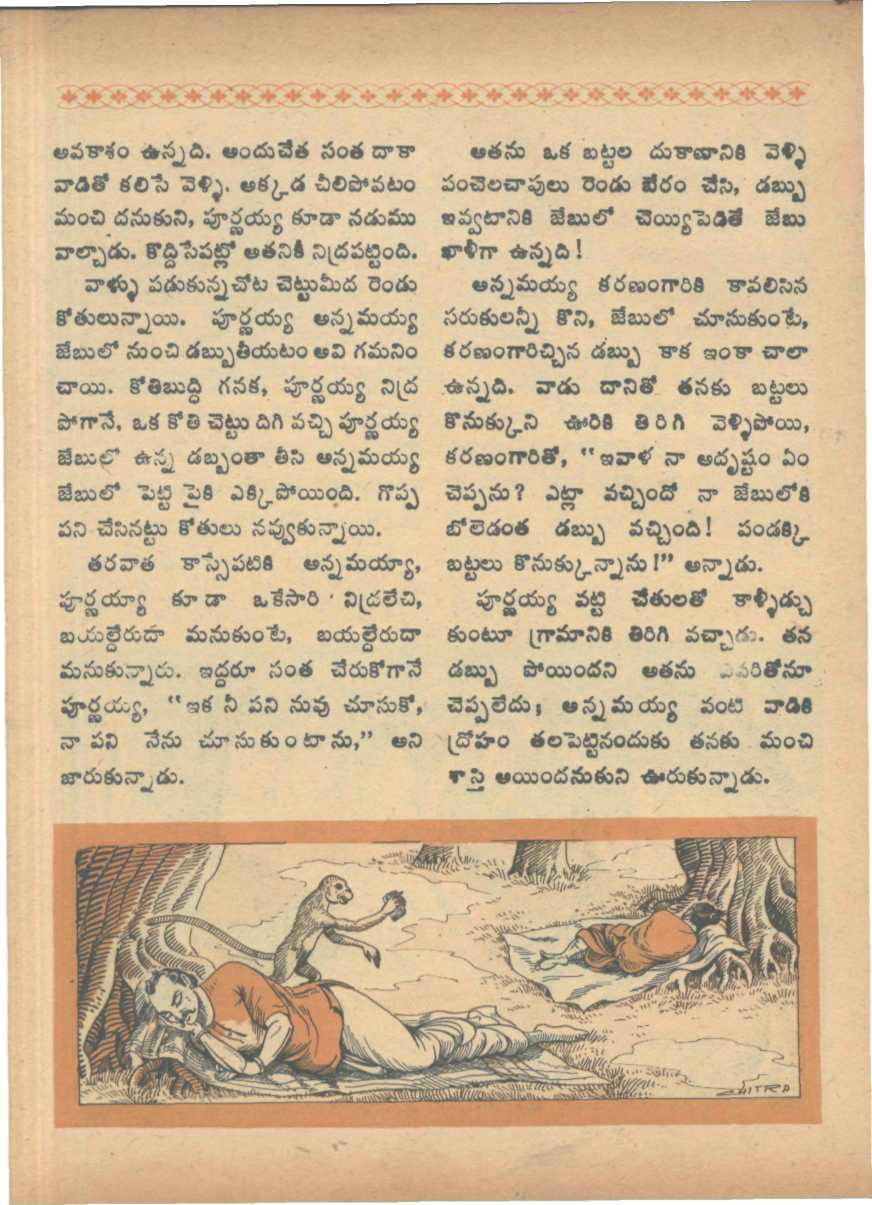 అవకాశం ఉన్నది. అందుచేత సంత దాకా
వాడితో కలిసే వెళ్ళి. అక్కడ చీలిపోవటం
మంచి దనుకుని, పూర్ణయ్య కూడా నడుము
వాల్చాడు. కొద్దిసేపట్లో అతనికీ నిద్రపట్టింది.
వాళ్ళు పడుకున్నచోట చెట్టుమీద రెండు
కోతులున్నాయి. పూర్ణయ్య అన్నమయ్య
జేబులో నుంచి డబ్బుతీయటం అవి గమనిం
చాయి. కోతిబుద్ధి గనక, పూర్ణయ్య నిద్ర
పోగానే, ఒక కోతి చెట్టు దిగి వచ్చి పూర్ణయ్య
జేబులో ఉన్న డబ్బంతా తీసి అన్నమయ్య
జేబులో పెట్టి పైకి ఎక్కిపోయింది. గొప్ప
పని చేసినట్టు కోతులు నవ్వుకున్నాయి.
తరవాత కాస్సేపటికి అన్నమయ్యా,
పూర్ణయ్యా కూడా ఒకేసారి నిద్రలేచి,
బయల్దేరుదా మనుకుంటే, బయల్దేరుదా
మనుకున్నారు. ఇద్దరూ సంత చేరుకోగానే
పూర్ణయ్య, "ఇక నీ పని నువు చూసుకో,
నా పని నేను చూసుకుంటాను," అని
జారుకున్నాడు.
అతను ఒక బట్టల దుకాణానికి వెళ్ళి
పంచెలచాపులు రెండు బేరం చేసి, డబ్బు
ఇవ్వటానికి జేబులో చెయ్యిపెడితే జేబు
ఖాళీగా ఉన్నది!
అన్నమయ్య కరణంగారికి కావలిసిన
సరుకులన్నీ కొని, జేబులో చూసుకుంటే,
కరణంగారిచ్చిన డబ్బు కాక ఇంకా చాలా
ఉన్నది. వాడు దానితో తనకు బట్టలు
కొనుక్కుని ఊరికి తిరిగి వెళ్ళిపోయి,
కరణంగారితో, "ఇవాళ నా అదృష్టం ఏం
చెప్పను? ఎట్లా వచ్చిందో నా జేబులోకి
బోలెడంత డబ్బు వచ్చింది! పండక్కి
బట్టలు కొనుక్కున్నాను!" అన్నాడు.
పూర్ణయ్య వట్టి చేతులతో కాళ్ళీడ్చు
కుంటూ గ్రామానికి తిరిగి వచ్చాడు. తన
డబ్బు పోయిందని అతను ఎవరితోనూ
చెప్పలేదు; అన్నమయ్య వంటి వాడికి
ద్రోహం తలపెట్టినందుకు తనకు మంచి
శాస్తి అయిందనుకుని ఊరుకున్నాడు.
CHITRA